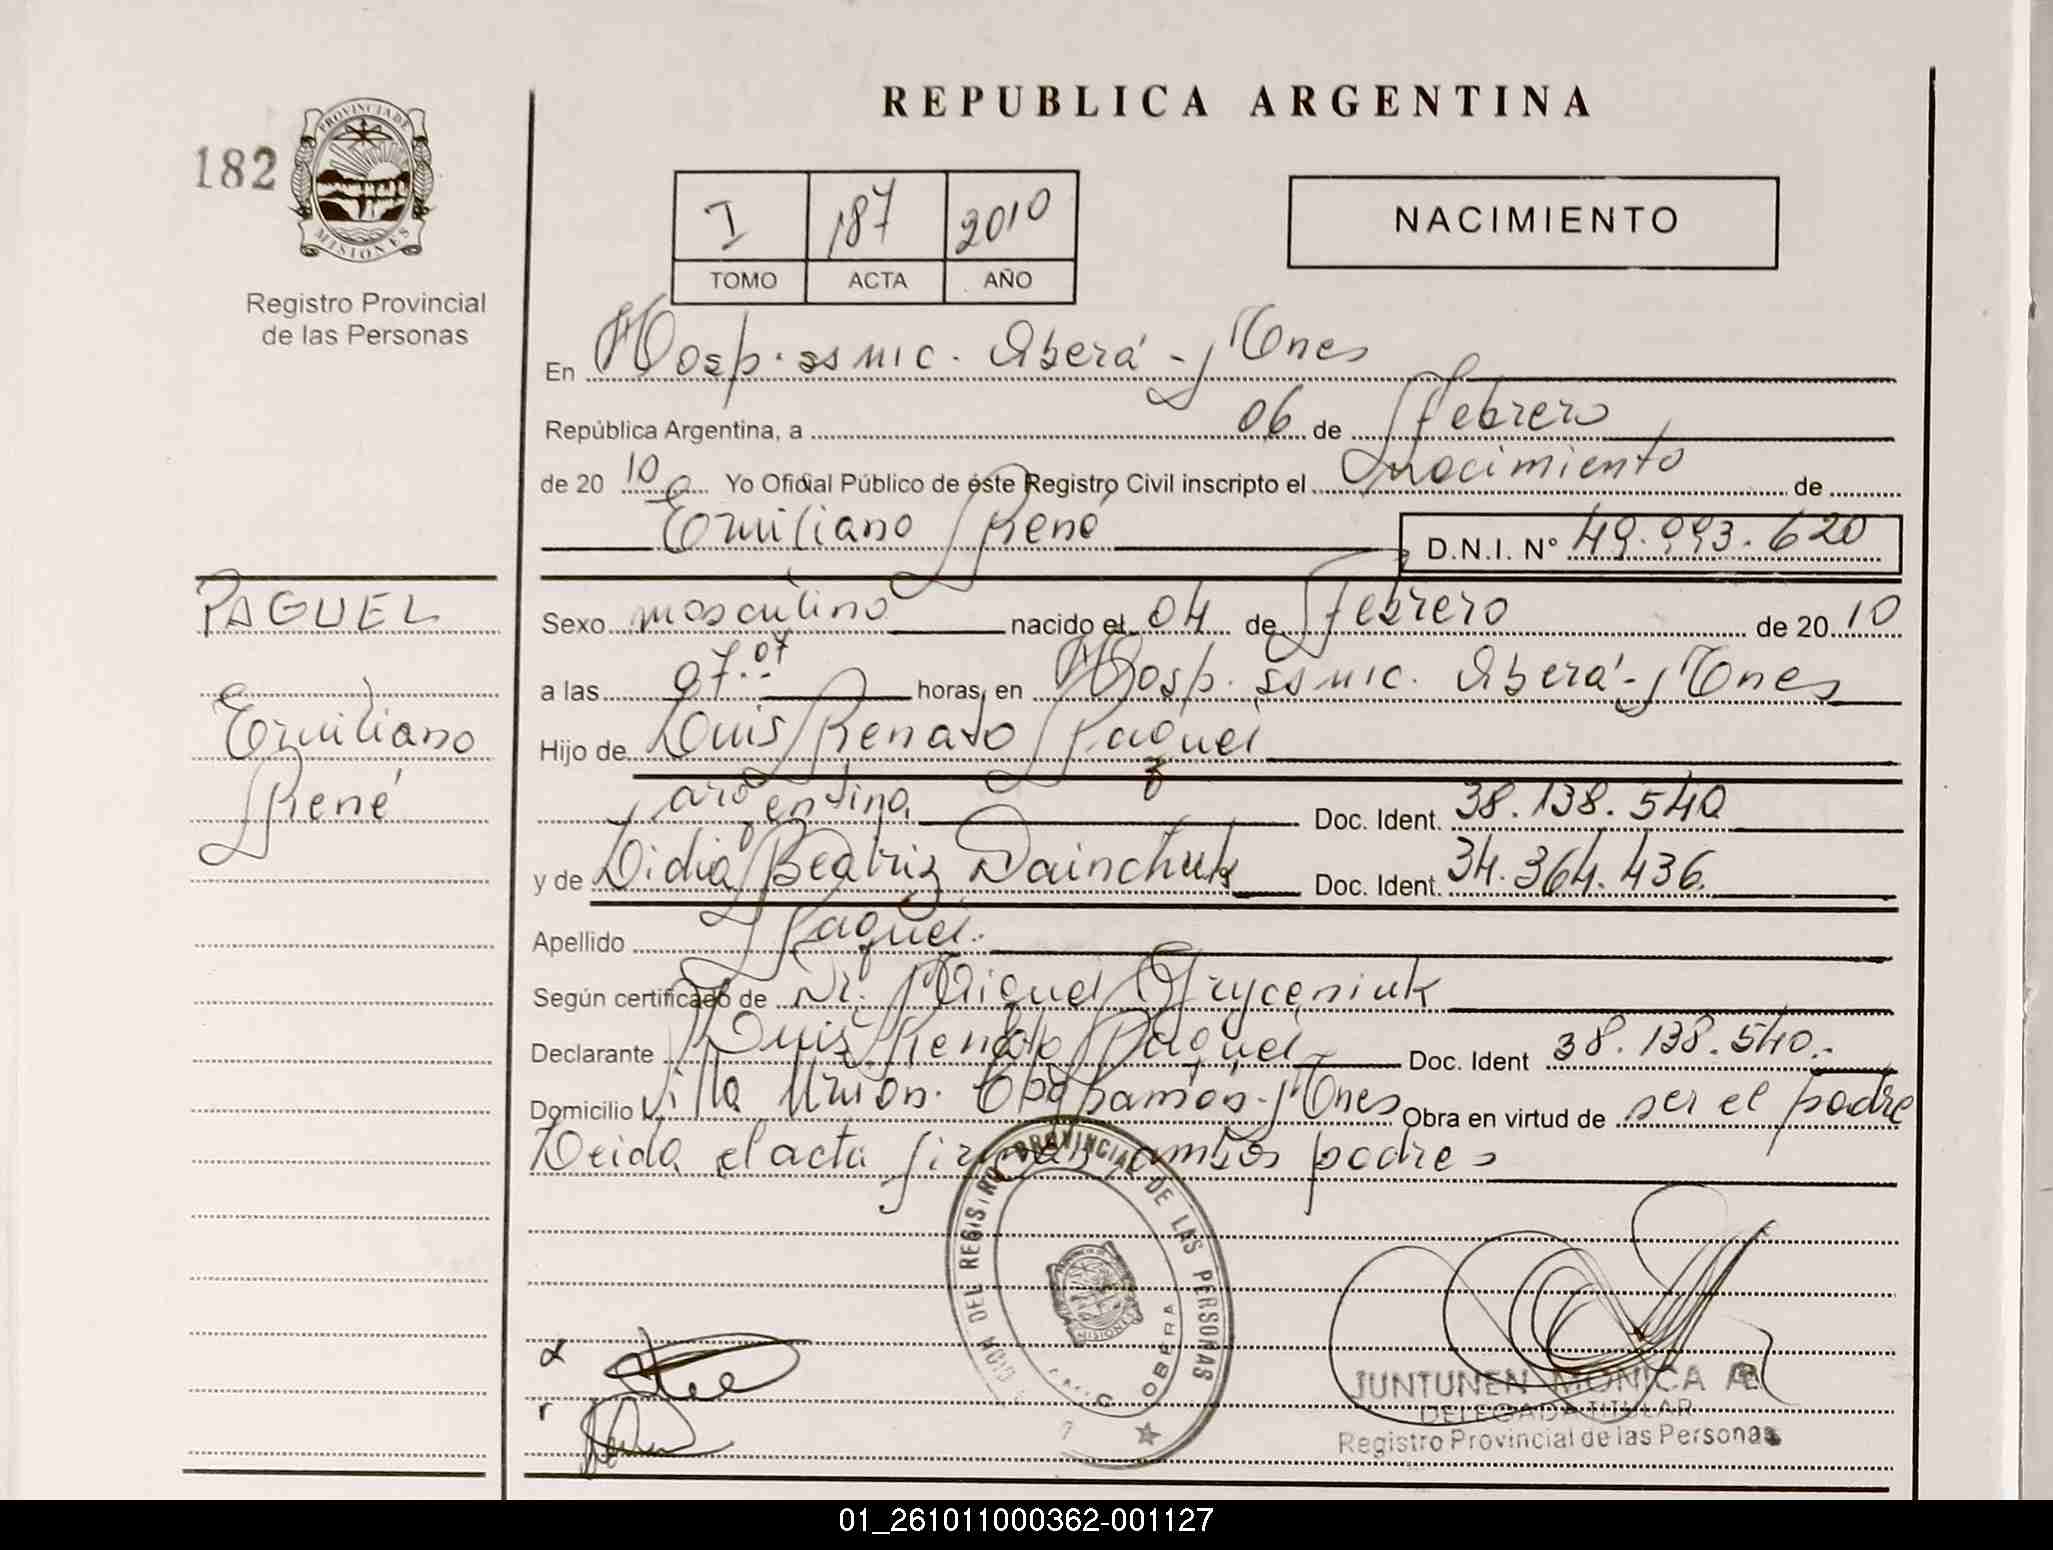 REPUBLICA ARGENTINA
182
PROVINCIA DE
MISIONES
Registro Provincial
de las Personas
I 187 2010
TOMO ACTA AÑO
NACIMIENTO
En Hosp. ss mic. Oberá - Mnes
República Argentina, a 06 de Febrero
de 20 10 Yo Oficial Público de éste Registro Civil inscripto el nacimiento de
Emiliano René D.N.I. N° 49.993.620
PAGUEL
Emiliano
René
Sexo masculino nacido el 04 de Febrero de 20 10
a las 07:07 horas, en Hosp. ss mic. Oberá - Mnes
Hijo de Luis Renato Paguel
argentina Doc. Ident. 38.138.540
y de Lidia Beatriz Dainchuk Doc. Ident. 34.364.436.
Apellido Paguel.
Según certificado de Dr. Miguel Gryceniuk
Declarante Luis Renato Paguel Doc. Ident 38.138.540.-
Domicilio Villa Union. Cpo Ramón - Mnes Obra en virtud de ser el padre
Leida el acta firman ambos padres
DEL REGISTRO PROVINCIAL DE LAS PERSONAS
MISIONES
OBERA
JUNTUNEN MONICA
DELEGADA TITULAR
Registro Provincial de las Personas
01_261011000362-001127